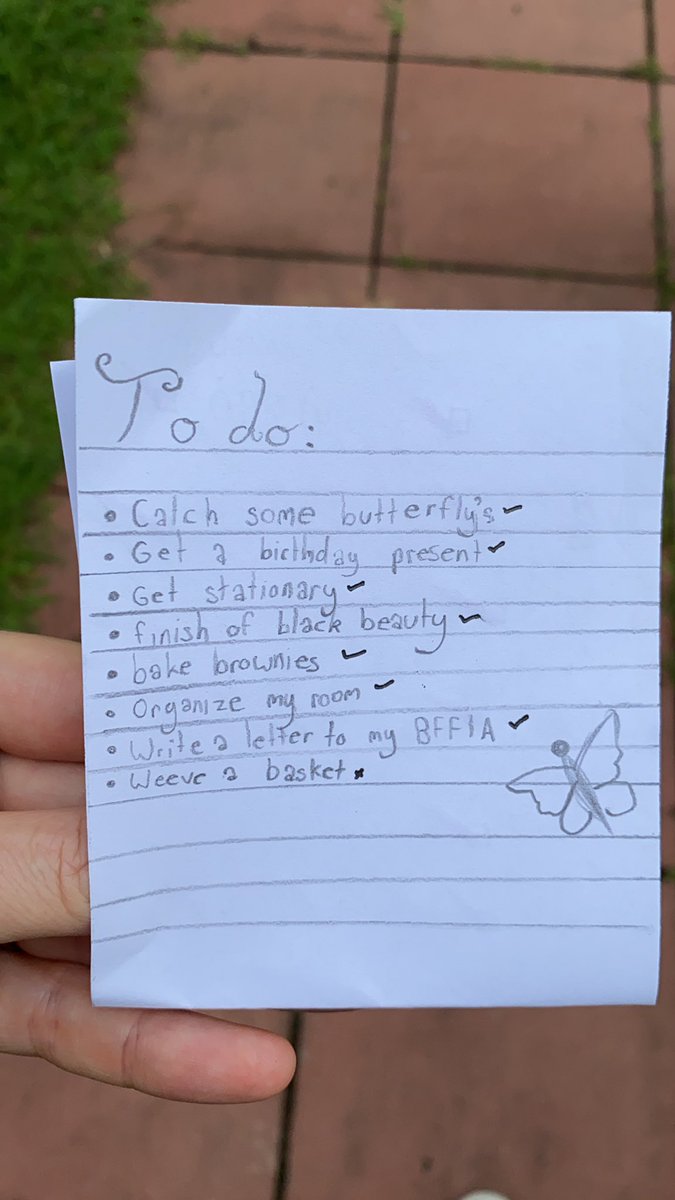 To do:
• Catch some butterfly's ✓
• Get a birthday present ✓
• Get stationary ✓
• finish of black beauty ✓
• bake brownies ✓
• Organize my room ✓
• Write a letter to my ✓
• Weeve a basket